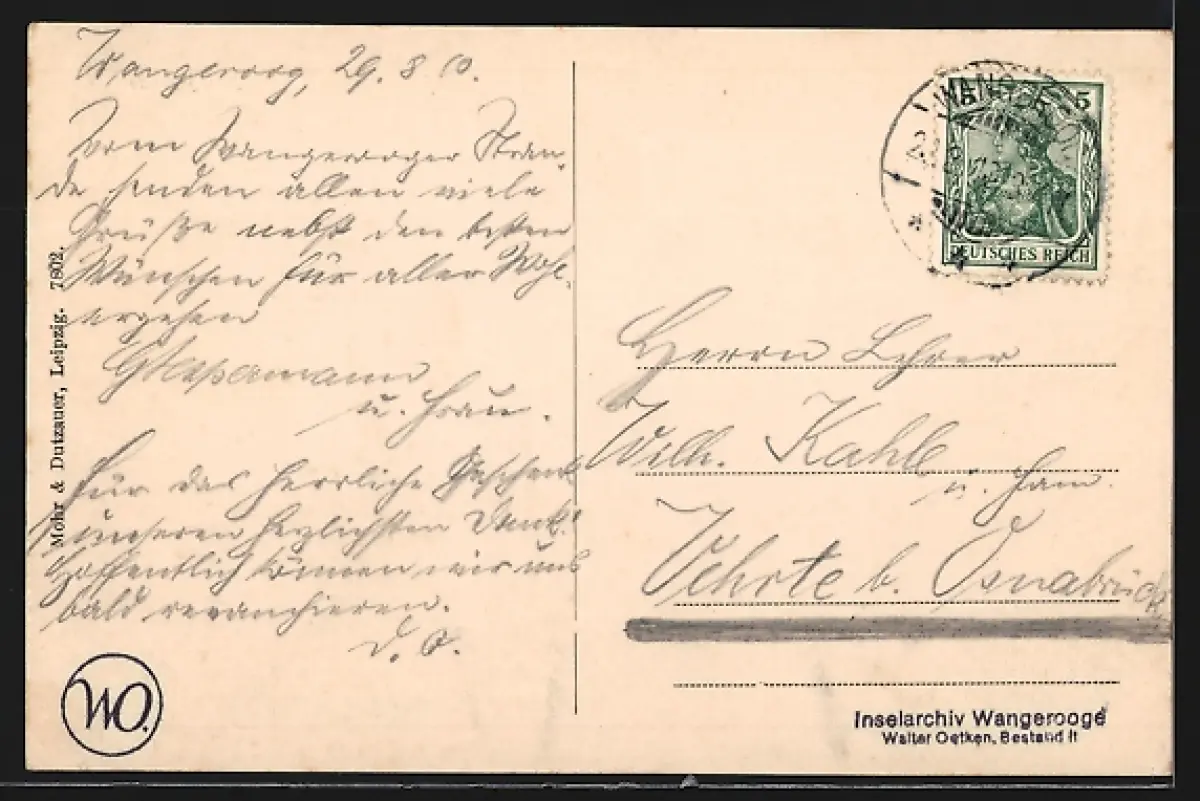 Wangeroog, 29. 8 10.
Vom Wangerooger Stran-
de senden allen viele
Grüße nebst den besten
Wünschen für aller Wohl-
ergehen
u. Frau.
Für das herrliche Geschenk
unseren herzlichsten Dank!
Hoffentlich können wir uns
bald revanchieren.
D. O.
Mohr & Dutzauer, Leipzig. 7802.
WO.
5
DEUTSCHES REICH
Herrn Lehrer
Wilh. Kahle
u. Fam.
Vehrte b. Osnabrück
Inselarchiv Wangerooge
Walter Oetken, Bestand II